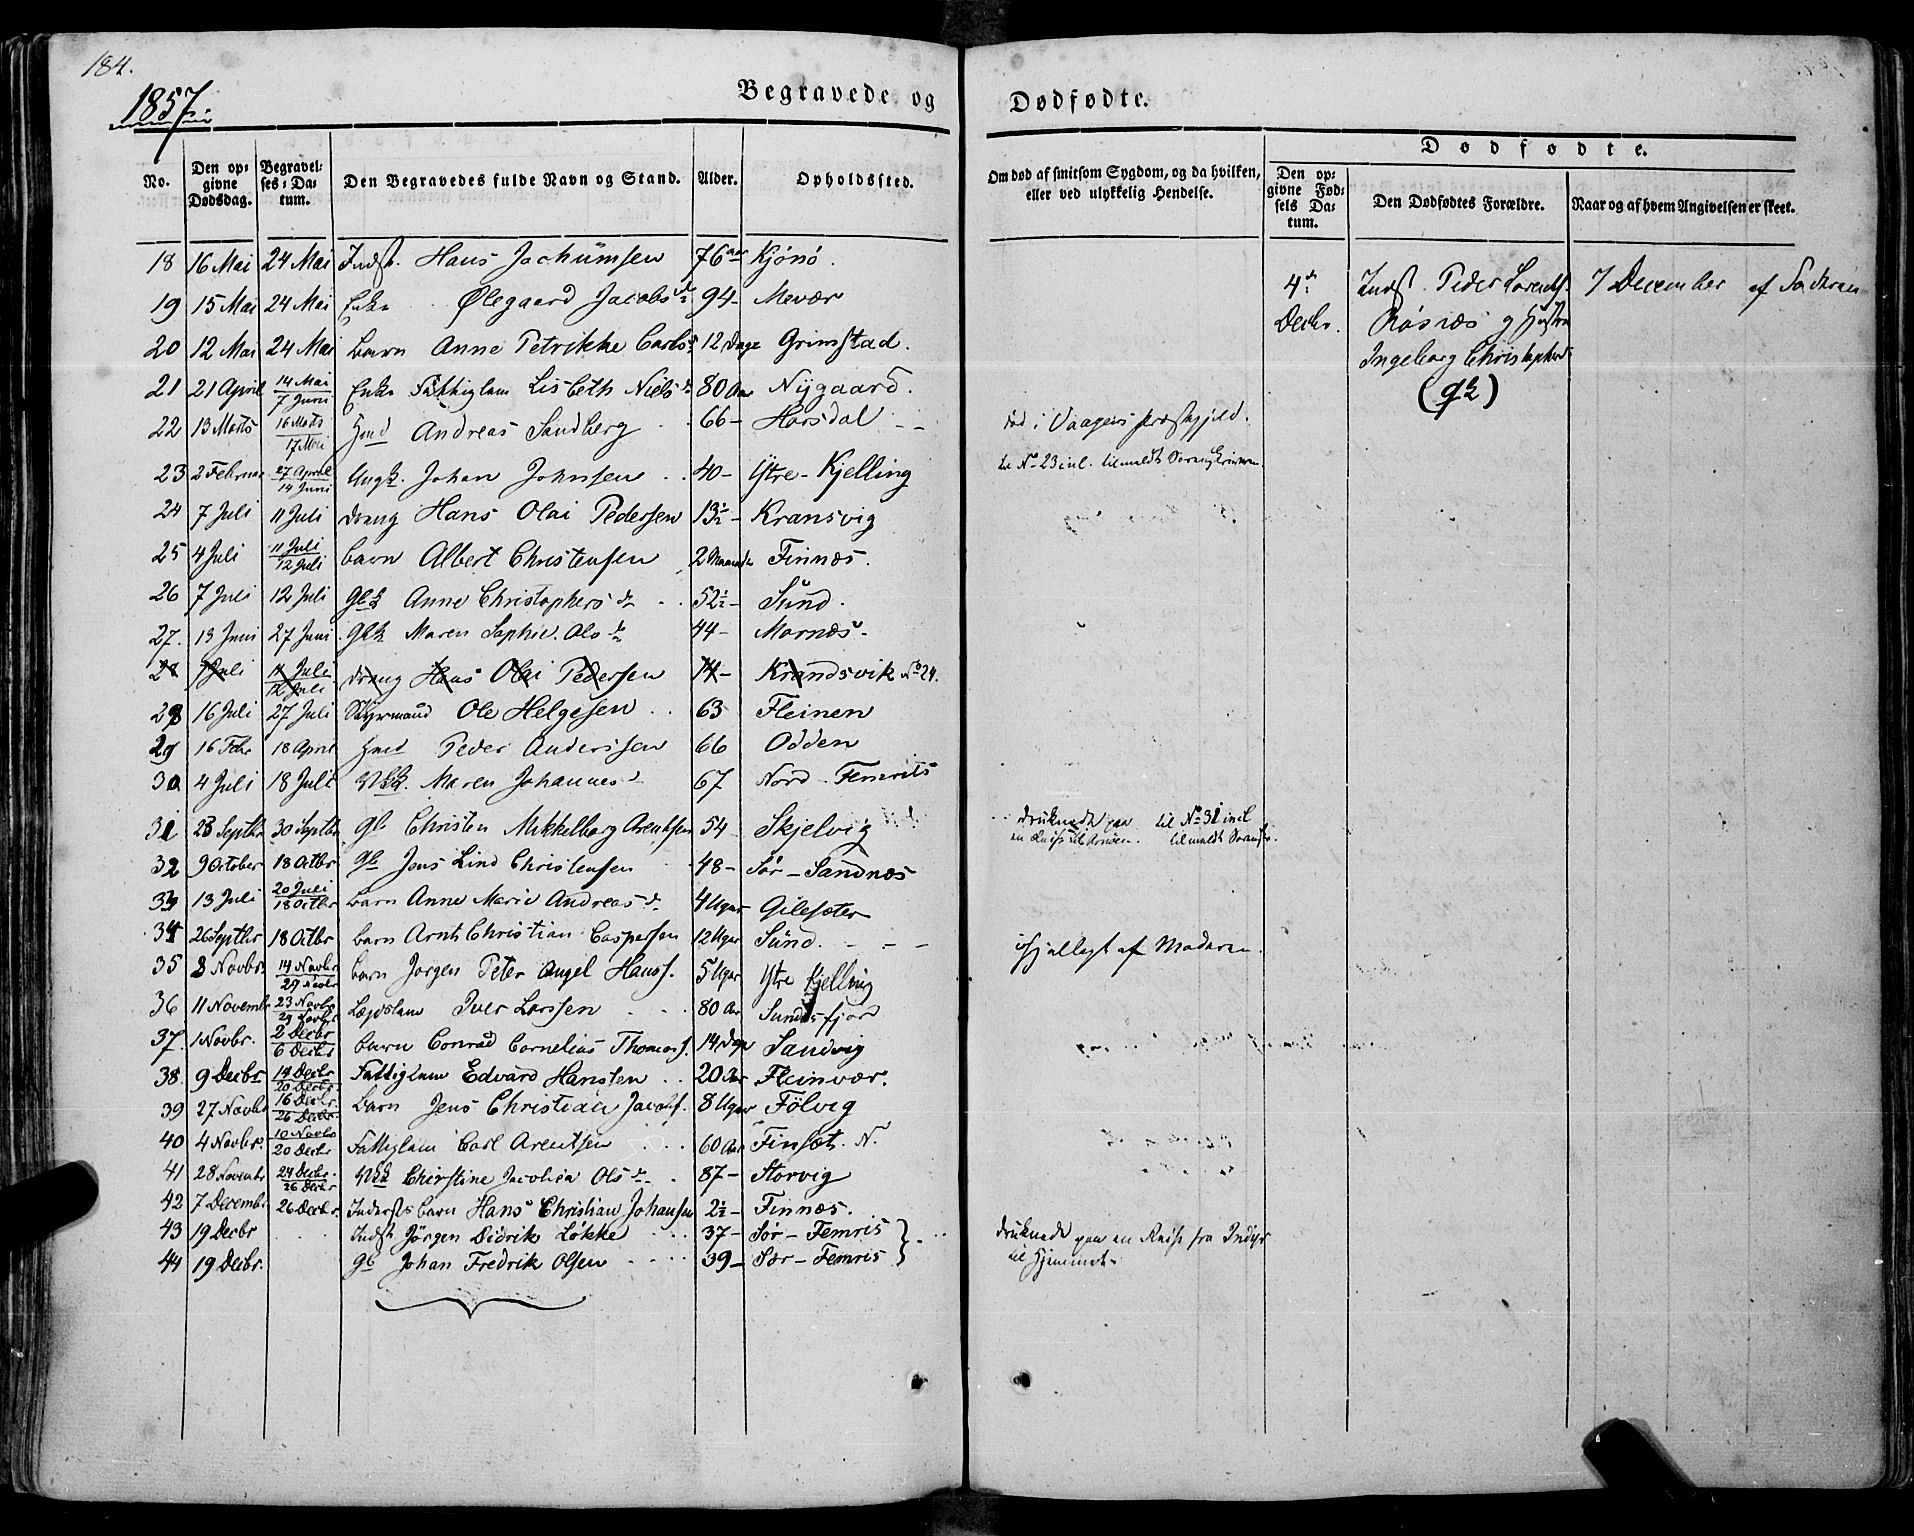 184.
1857.
Begravede og
Dødfødte.
No. Den opgivne Dødsdag. Begravelses-Datum. Den Begravedes fulde Navn og Stand. Alder. Opholdssted.
Om død af smitsom Sygdom, og da hvilken, eller ved ulykkelig Hendelse.
Dødfødte.
Den opgivne Fødsels Datum. Den Dødfødtes Forældre. Naar og af hvem Angivelsen er skeet.
18 16 Mai 24 Mai Indst. Hans Jochumsen 76 aar Kjønø.
19 15 Mai 24 Mai Enke Ølegaard Jacobsd. 94 - Mevær
20 12 Mai 24 Mai barn Anne Petrikke Carlsd. 12 Dage Grimstad.
21 21 April 14 Mai 7 Juni Enke Fattiglem Lisbeth Nielsd. 80 Aar Nygaard.
22 13 Marts 16 Marts 17 Mai Gmd Andreas Sandberg 66 - Horsdal - - død i Vaagens præstegjeld.
23 2 Februar 27 April 14 Juni Ungk. Johan Johnsen 40 - Ytre-Kjelling til No 23 incl. tilmeldt
24 7 Juli 11 Juli dreng Hans Olai Pedersen 13½ - Kransvig
25 4 Juli 11 Juli 12 Juli barn Albert Christensen 2 Maaneder Finnæs.
26 7 Juli 12 Juli Gbk Anne Christophersd. 52½ - Sund.
27. 13 Juni 27 Juni Gbk Maren Sophie Olsd. 44 - Mornæs.
28 7 Juli 11 Juli 12 Juli dreng Hans Olai Pedersen 14 - Krandsvik No 24.
28 16 Juli 27 Juli Styrmand Ole Helgesen 63 Fleinen
29 16 Febr 18 April Gmd Peder Anderssen 66 Odden
30 4 Juli 18 Juli Maren Johannesd. 67 Nord-Femris
31 23 Septbr 30 Septbr. Gb Christen Mikkelborg Arentsen 54 Skjelvig druknede paa en til No 31 incl tilmeldt
32 9 October 18 Octbr Gb Jens Lind Christensen 48 - Sør-Sandnæs
33 13 Juli 20 Juli 18 Octbr barn Anne Marie Andreasd. 4 Uger Gilesæter
34 26 Septbr 18 Octbr barn Arnt Christian Caspersen 12 Uger Sund. - - - ihjellagt af Moderen.
35 8 Novbr. 14 Novbr 29 Novbr barn Jørgen Peter Angel Hanss. 5 Uger Ytre Kjelling
36 11 Novembr 23 Novbr 29 Novbr Lægdslem Iver Larssen 80 Aar Sundsfjord
37. 1 Novbr. 2 Decbr 6 Decbr barn Conrad Cornelius Thomass. 14 Dage Sandvig
38. 9 Decbr 14 Decbr 20 Decbr Fattiglem Edvard Hansen 20 Aar Fleinvær.
39 27 Novbr 16 Decbr. 26 Decbr. barn Jens Christian Jacobs. 8 Uger Fölvig
40 4 Novbr. 10 Novbr 20 Decbr Fattiglem Carl Arentsen 60 Aar Finsæt. N.
41 28 Novembr 24 Decbr. 26 Decbr Christine Jacobea Olsd. 87 - Storvig
42 7 Decembr 26 Decbr. Inderstes barn Hans Christian Johansen 2½ - Finnæs.
43 19 Decbr Indst Jørgen Didrik Løkke 37 - Sør-Femris
44 19 Decbr. Gb Johan Fredrik Olsen 39 - Sør-Femris
druknede paa en Reise fra Indyr
til Hjemmet.
4de Decbr. Indst. Peder Lorents. Røsnæs og Hustru Ingeborg Christophersd. (gk) 7 December af Faderen